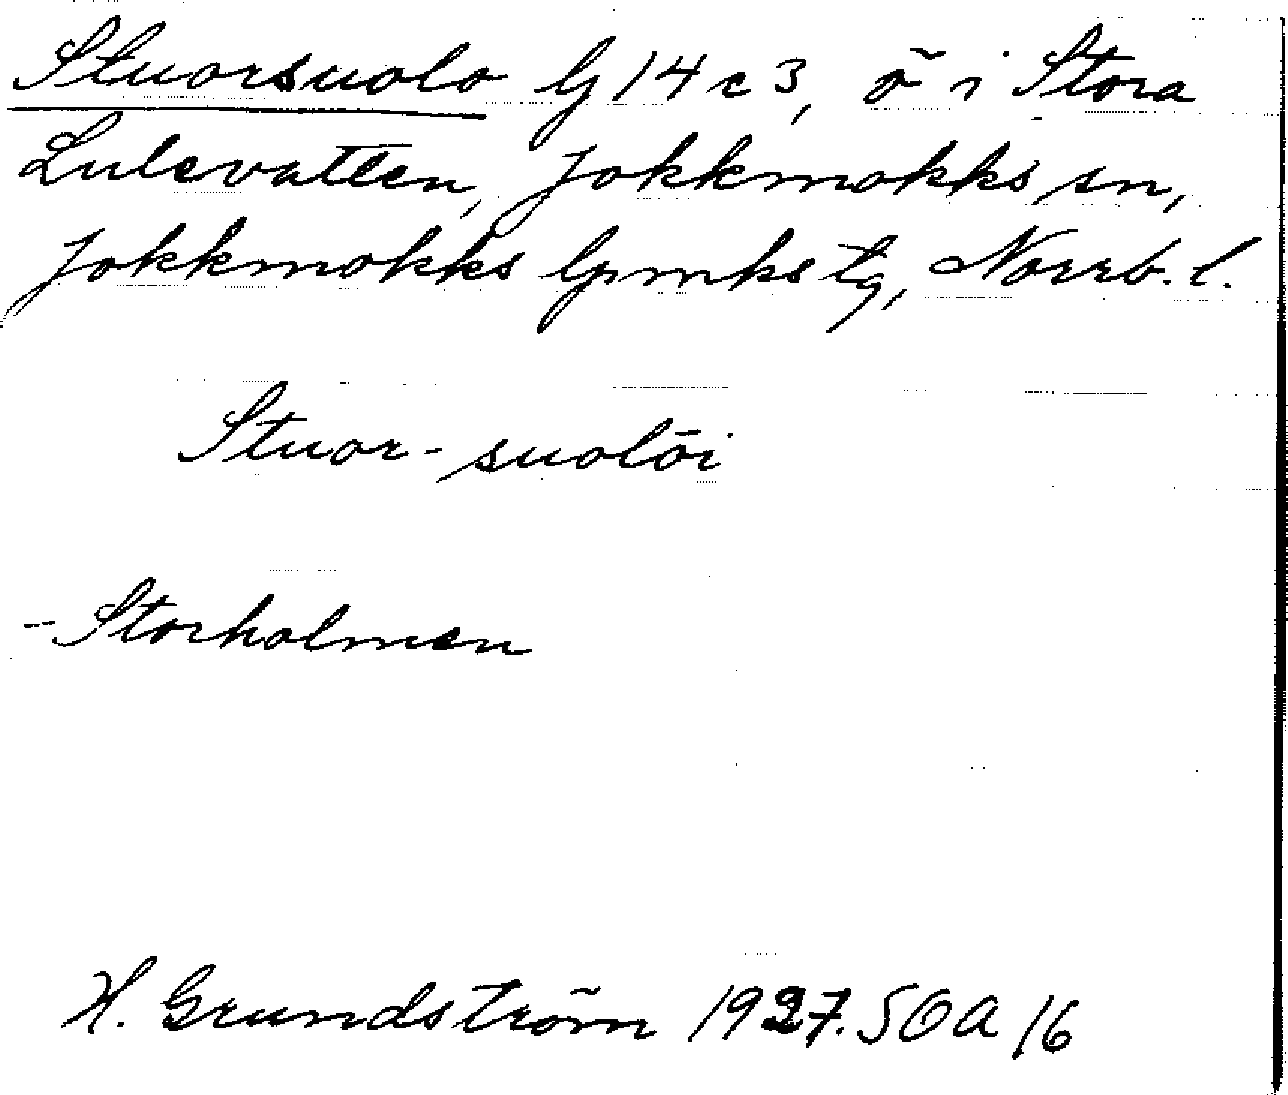 Stuorsuolo G 14 c 3, ö i Stora
Lulevatten, Jokkmokks sn,
Jokkmokks lpmks tg, Norrb. l.
Stuor-suolōi
- Storholmen
H. Grundström 1927. SOA 16